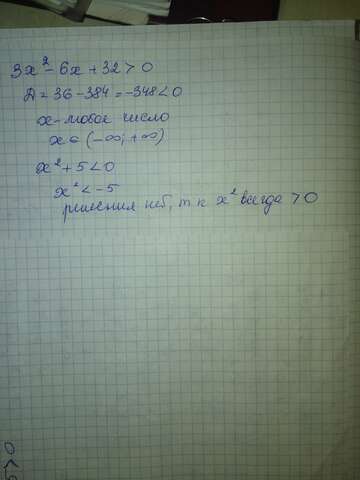 3x² - 6x + 32 > 0
Д = 36 - 384 = -348 < 0
x - любое число
x ∈ (-∞; +∞)
x² + 5 < 0
x² < -5
решения нет, т к x² всегда > 0